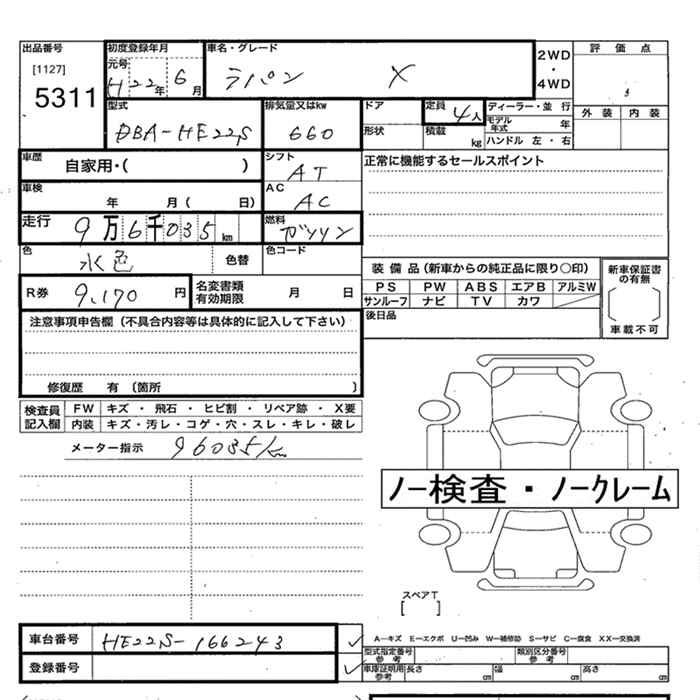 出品番号 初度登録年月 車名・グレード 2WD・4WD 評価点
[1127] 元号
5311 H22年6月 ラパン X
型式 排気量又はkw ドア 定員 4人 ディーラー・並行 外装 内装
DBA-HE22S 660 形状 積載 kg モデル年式 年
ハンドル 左・右
車歴 自家用・( ) シフト AT 正常に機能するセールスポイント
車検 年 月( 日) AC AC
走行 9万6千035km 燃料 ガソリン
色 水色 色替 色コード
装備品(新車からの純正品に限り○印) 新車保証書の有無
R券 9,170円 名変書類有効期限 月 日 PS PW ABS エアB アルミW
サンルーフ ナビ TV カワ
後日品 車載不可
注意事項申告欄(不具合内容等は具体的に記入して下さい)
修復歴 有(箇所 )
検査員記入欄 FW キズ・飛石・ヒビ割・リペア跡・X要
内装 キズ・汚レ・コゲ・穴・スレ・キレ・破レ
メーター指示 96035km
ノー検査・ノークレーム
スペアT
[ ]
車台番号 HE22S-166243 A−キズ E−エクボ U−凹み W−補修跡 S−サビ C−腐食 XX−交換済
型式指定番号 参考 類別区分番号 参考
登録番号 車庫証明用参考 長さ cm 幅 cm 高さ cm